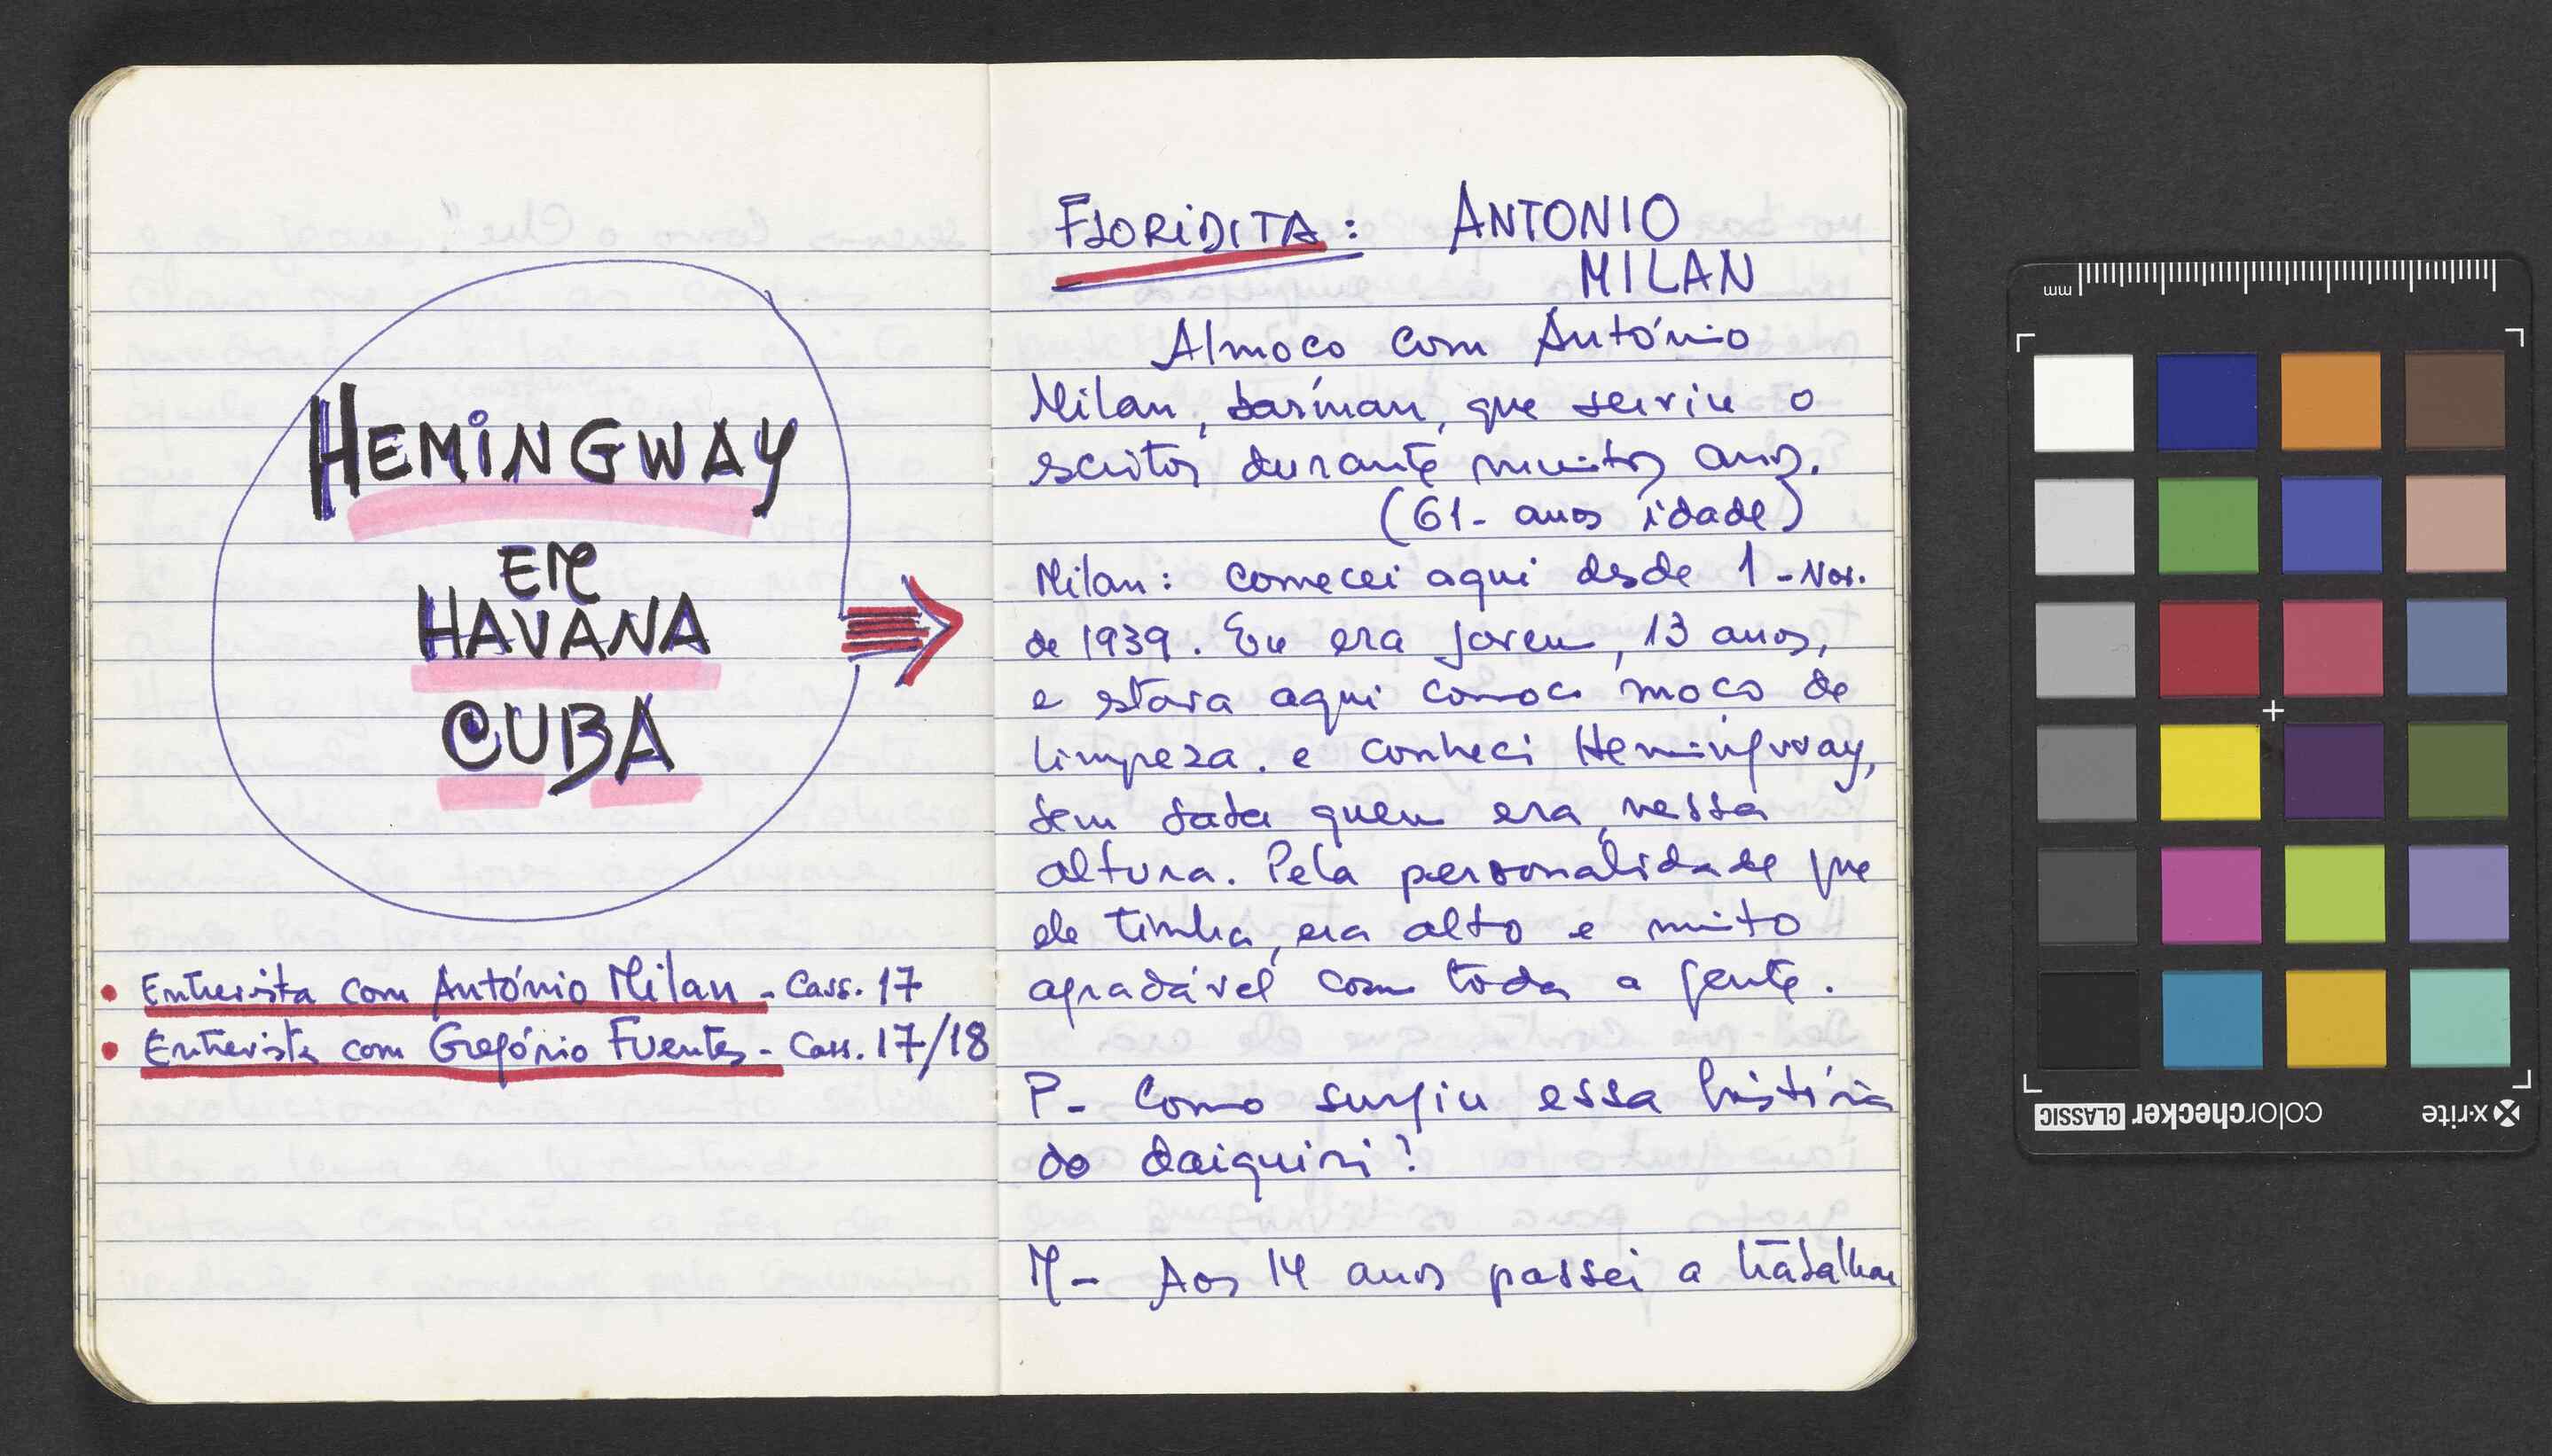 HEMINGWAY
EM
HAVANA
CUBA
• Entrevista com António Milan - Cass. 17
• Entrevista com Gregório Fuentes - Cass. 17/18
FLORIDITA: ANTONIO
MILAN
Almoco com António
Milan, barman, que serviu o
escritor durante muitos anos.
(61- anos idade)
Milan: comecei aqui desde 1 - Nov.
de 1939. Eu era jovem, 13 anos,
e estava aqui como moco de
limpeza. e conheci Hemingway,
sem saber quem era, nessa
altura. Pela personalidade que
ele tinha, era alto e muito
agradável com toda a gente.
P- Como surgiu essa história
do daiquiri?
M- Aos 14 anos passei a trabalhar
mm
colorchecker CLASSIC
x-rite